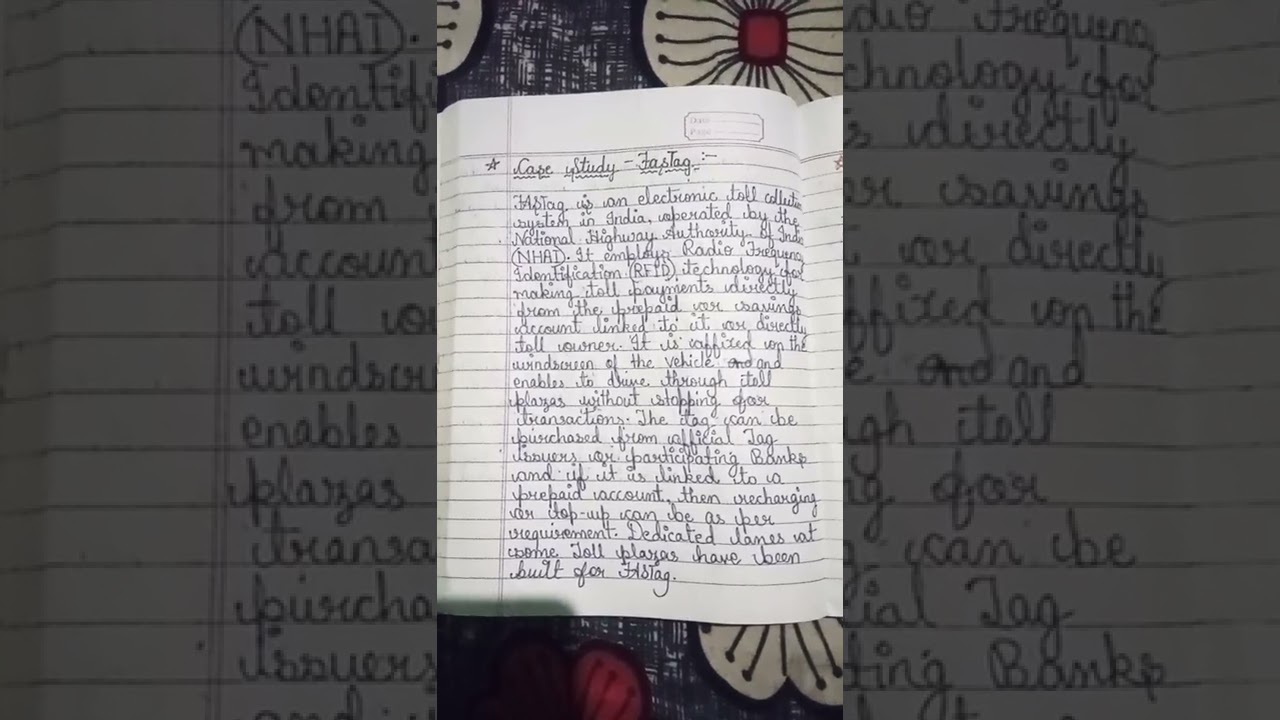 Date
Page
Case Study - FasTag :-
FASTag is an electronic toll collection
system in India, operated by the
National Highway Authority of India
(NHAI). It employs Radio Frequency
Identification (RFID) technology for
making toll payments directly
from the prepaid or savings
account linked to it or directly
toll owner. It is affixed on the
windscreen of the vehicle and and
enables to drive through toll
plazas without stopping for
transactions. The tag can be
purchased from official Tag
Issuers or participating Banks
and if it is linked to a
prepaid account, then recharging
or top-up can be as per
requirement. Dedicated lanes at
some Toll plazas have been
built for FASTag.